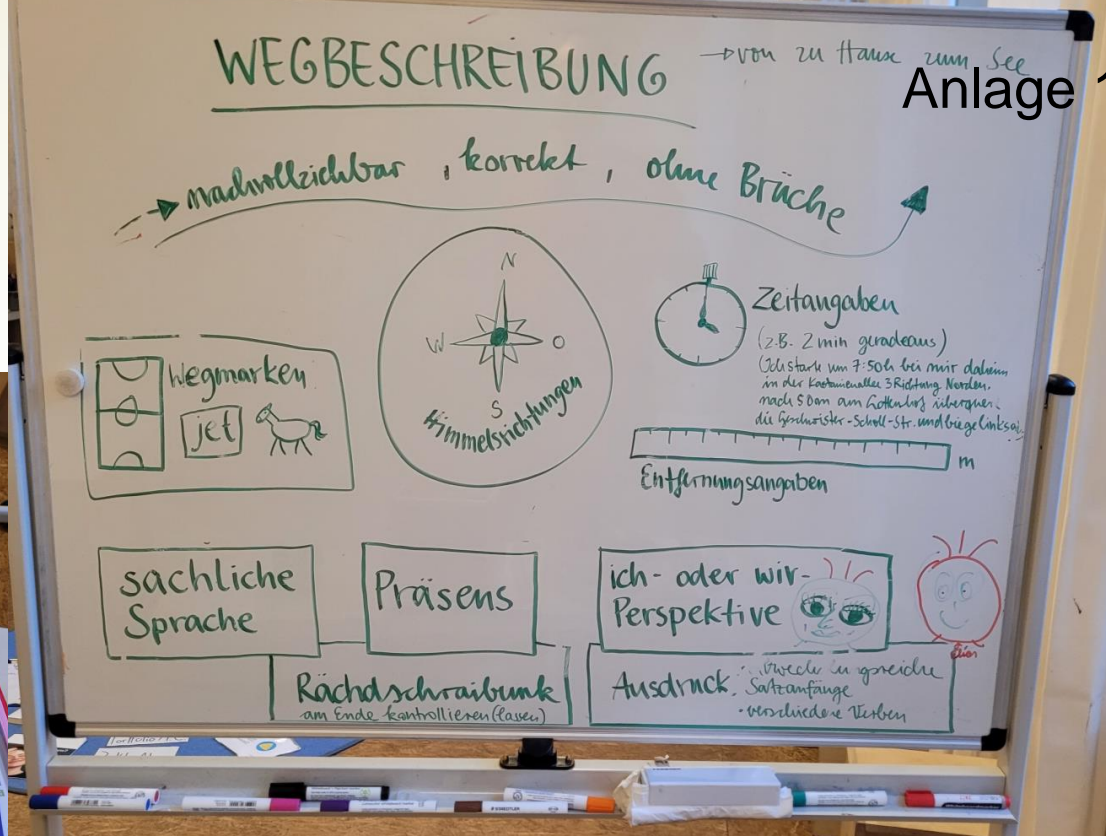 WEGBESCHREIBUNG
→ von zu Hause zum See
Anlage 1
nachvollziehbar, korrekt, ohne Brüche
N
W O
S
Himmelsrichtungen
Wegmarken
jet
Zeitangaben
(z.B. 2 min geradeaus)
(Ich starte um 7:50h bei mir daheim
in der Kastanienallee 3 Richtung Norden.
nach 50m am Gottenhof
die Geschwister-Scholl-Str. und biege links
m
Entfernungsangaben
sachliche
Sprache
Präsens
ich- oder wir-
Perspektive
Rächdschraibunk
am Ende kontrollieren (lassen)
Ausdruck:
Satzanfänge
• verschiedene Verben